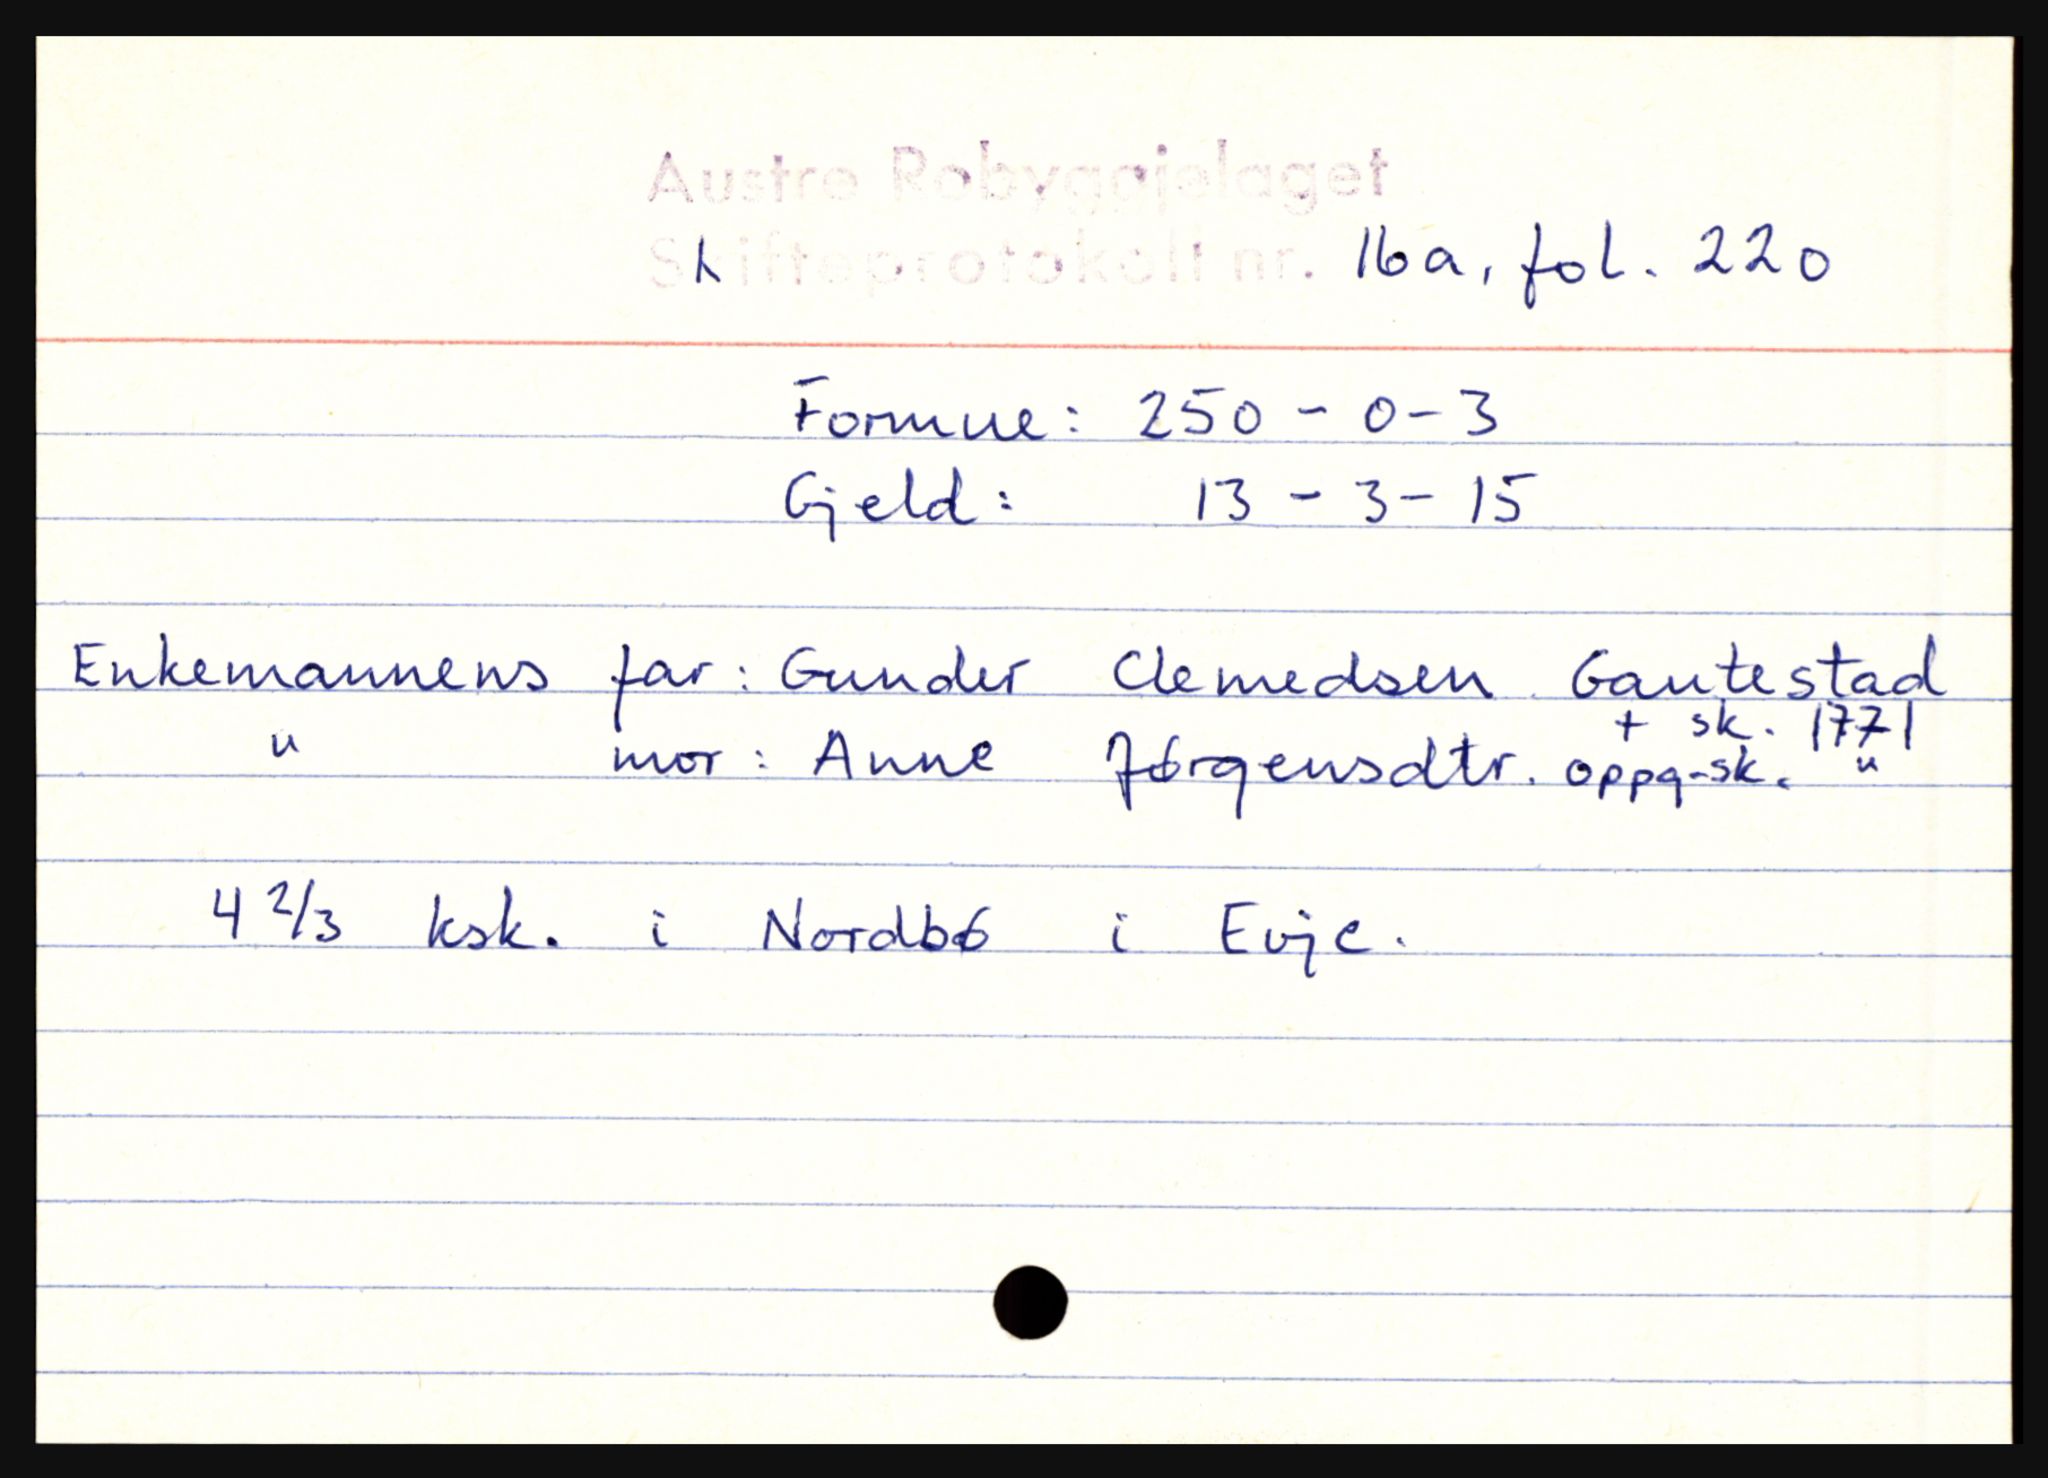 Austre Robyggjelaget
Skifteprotokoll nr. 16a, fol. 220
Formue: 250 - 0 - 3
Gjeld: 13 - 3 - 15
Enkemannens far: Gunder Clemedsen Gautestad
+ sk. 1771
" mor: Anne Jørgensdtr. oppg-sk. "
4 2/3 ksk. i Nordbø i Evje.